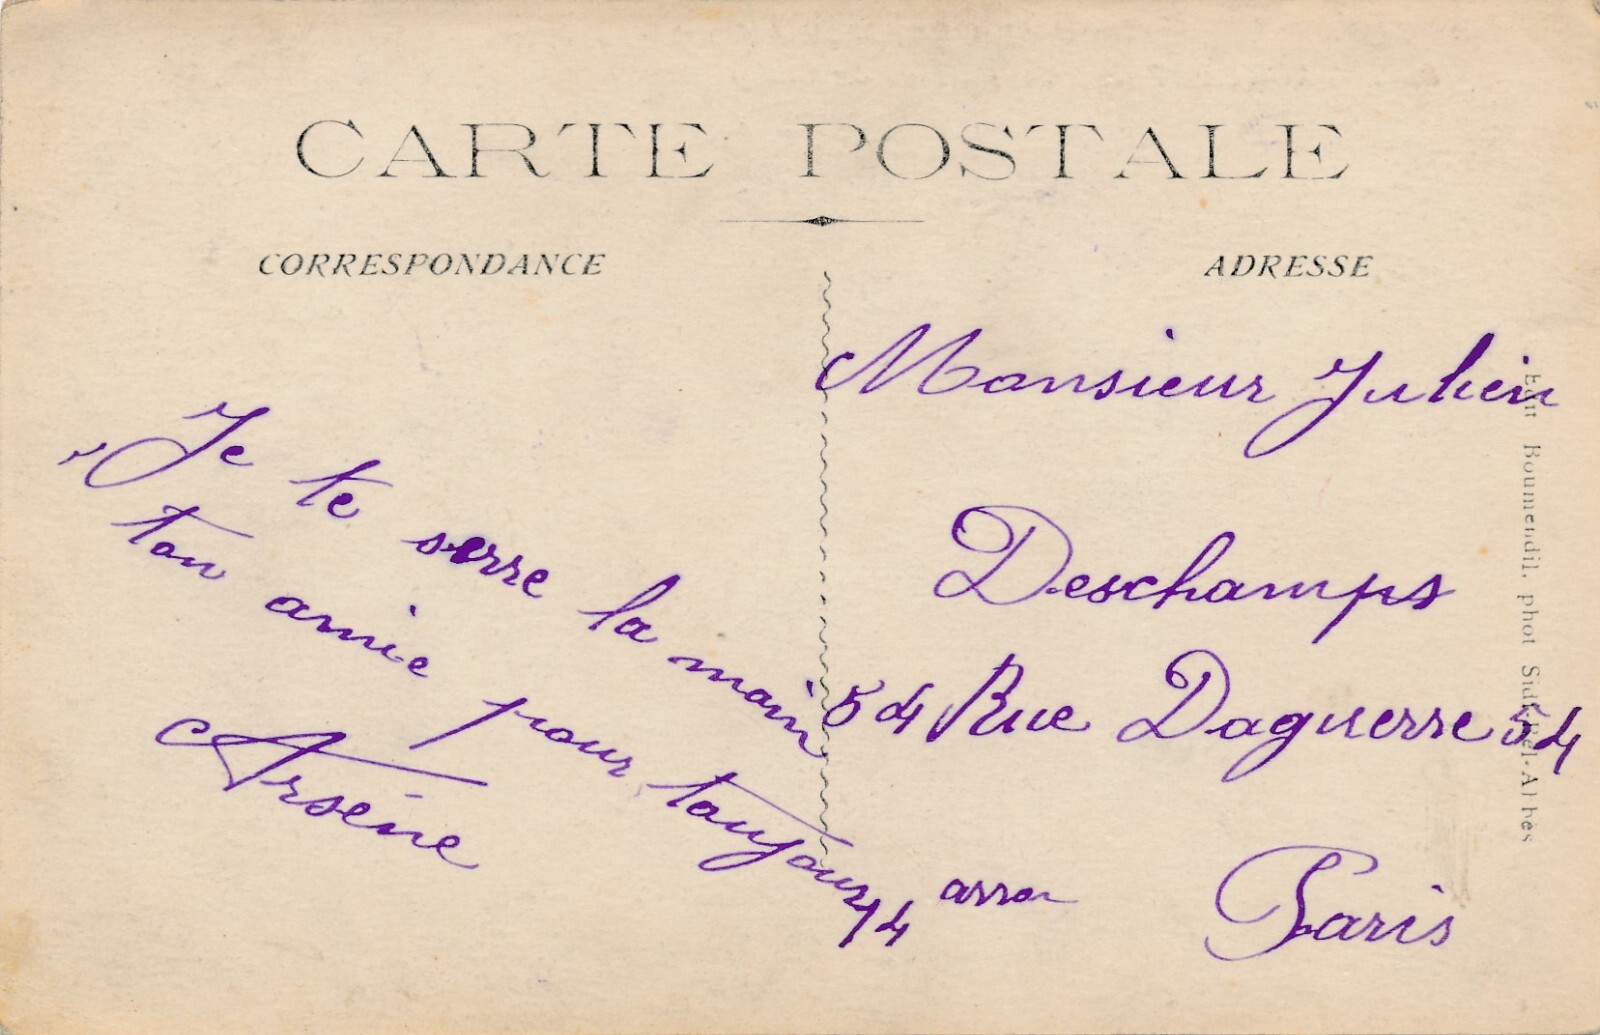 CARTE POSTALE
CORRESPONDANCE
Je te serre la main
ton amie pour toujours
Arsène
ADRESSE
Monsieur Julien
Deschamps
54 Rue Daguerre 54
14 arron Paris
Edit Boumendil, phot Sidi-Bel-Abbès